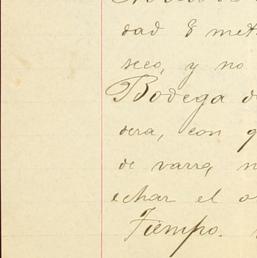 dad 8 met
seco, y no
Bodega d
dera, con q
de varra, n
echar el a
Tiempo.